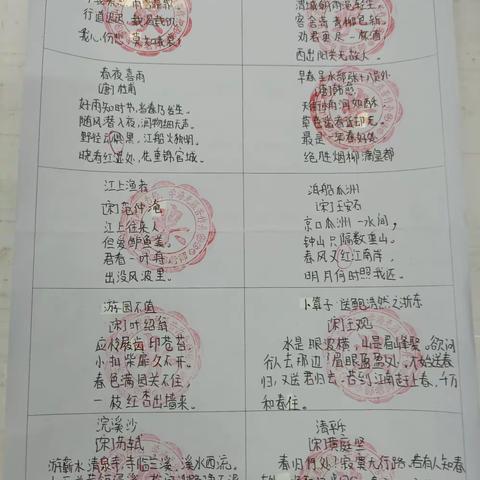 行道迟迟，载渴载饥。
我心伤悲，莫知我哀！
渭城朝雨浥轻尘，
客舍青青柳色新。
劝君更尽一杯酒，
西出阳关无故人。
春夜喜雨
[唐]杜甫
好雨知时节，当春乃发生。
随风潜入夜，润物细无声。
野径云俱黑，江船火独明。
晓看红湿处，花重锦官城。
早春呈水部张十八员外
[唐]韩愈
天街小雨润如酥，
草色遥看近却无。
最是一年春好处，
绝胜烟柳满皇都
江上渔者
[宋]范仲淹
江上往来人，
但爱鲈鱼美。
君看一叶舟，
出没风波里。
泊船瓜洲
[宋]王安石
京口瓜洲一水间，
钟山只隔数重山。
春风又江南岸，
明月何时照我还。
游园不值
[宋]叶绍翁
应怜屐齿印苍苔，
小扣柴扉久不开。
春色满园关不住，
一枝红杏出墙来。
卜算子·送鲍浩然之浙东
[宋]王观
水是眼波横，山是眉峰聚。欲问
行人去那边？眉眼盈盈处。才始送春
归，又送君归去。若到江南赶上春，千万
和春住。
浣溪沙
[宋]苏轼
游蕲水清泉寺，寺临兰溪，溪水西流。
清平乐
[宋]黄庭坚
春归何处？寂寞无行路。若有人知春